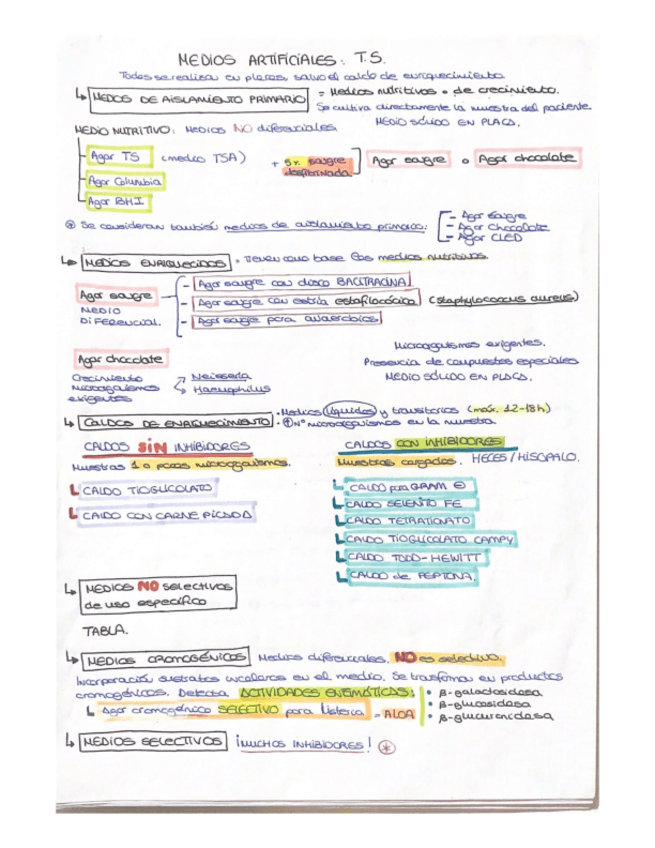 MEDIOS ARTIFICIALES: T.S.
Todos se realiza en placas, salvo el caldo de enriquecimiento.
↳ MEDIOS DE AISLAMIENTO PRIMARIO = Medios nutritivos o de crecimiento.
Se cultiva directamente la muestra del paciente.
MEDIO SÓLIDO EN PLACA.
MEDIO NUTRITIVO: MEDIOS NO diferenciales.
Agar TS (medio TSA) + 5% sangre desfibrinada Agar sangre o Agar chocolate
Agar Columbia
Agar BHI
* Se consideran también medios de aislamiento primario: - Agar Sangre
- Agar Chocolate
- Agar CLED
↳ MEDIOS ENRIQUECIDOS = Tienen como base los medios nutritivos.
Agar sangre
MEDIO DIFERENCIAL.
- Agar sangre con disco BACITRACINA
- Agar sangre con estría estafilocócica (Staphylococcus aureus)
- Agar sangre para anaerobios
Microorganismos exigentes.
Presencia de compuestos especiales
MEDIO SÓLIDO EN PLACA.
Agar chocolate
Crecimiento microorganismos exigentes
→ Neisseria
→ Haemophilus
↳ CALDOS DE ENRIQUECIMIENTO · Medios líquidos y transitorios (máx. 12-18h)
· ⊕ Nº microorganismos en la muestra
CALDOS SIN INHIBIDORES
Muestras 1 o pocos microorganismos.
CALDO TIOGLICOLATO
CALDO CON CARNE PICADA
CALDOS CON INHIBIDORES
Muestras cargadas. HECES/HISOPALO.
CALDO para GRAM ⊖
CALDO SELENITO FE
CALDO TETRATIONATO
CALDO TIOGLICOLATO CAMPY
CALDO TODD-HEWITT
CALDO de PEPTONA.
↳ MEDIOS NO selectivos
de uso específico
TABLA.
↳ MEDIOS CROMOGÉNICOS Medios diferenciales. NO es selectivo.
Incorporación sustratos incoloros en el medio. Se transforma en productos
cromogénicos. Detecta ACTIVIDADES ENZIMÁTICAS: • β-galactosidasa
• β-glucosidasa
• β-glucuronidasa
↳ Agar cromogénico SELECTIVO para Listeria = ALOA
↳ MEDIOS SELECTIVOS ¡MUCHOS INHIBIDORES! *